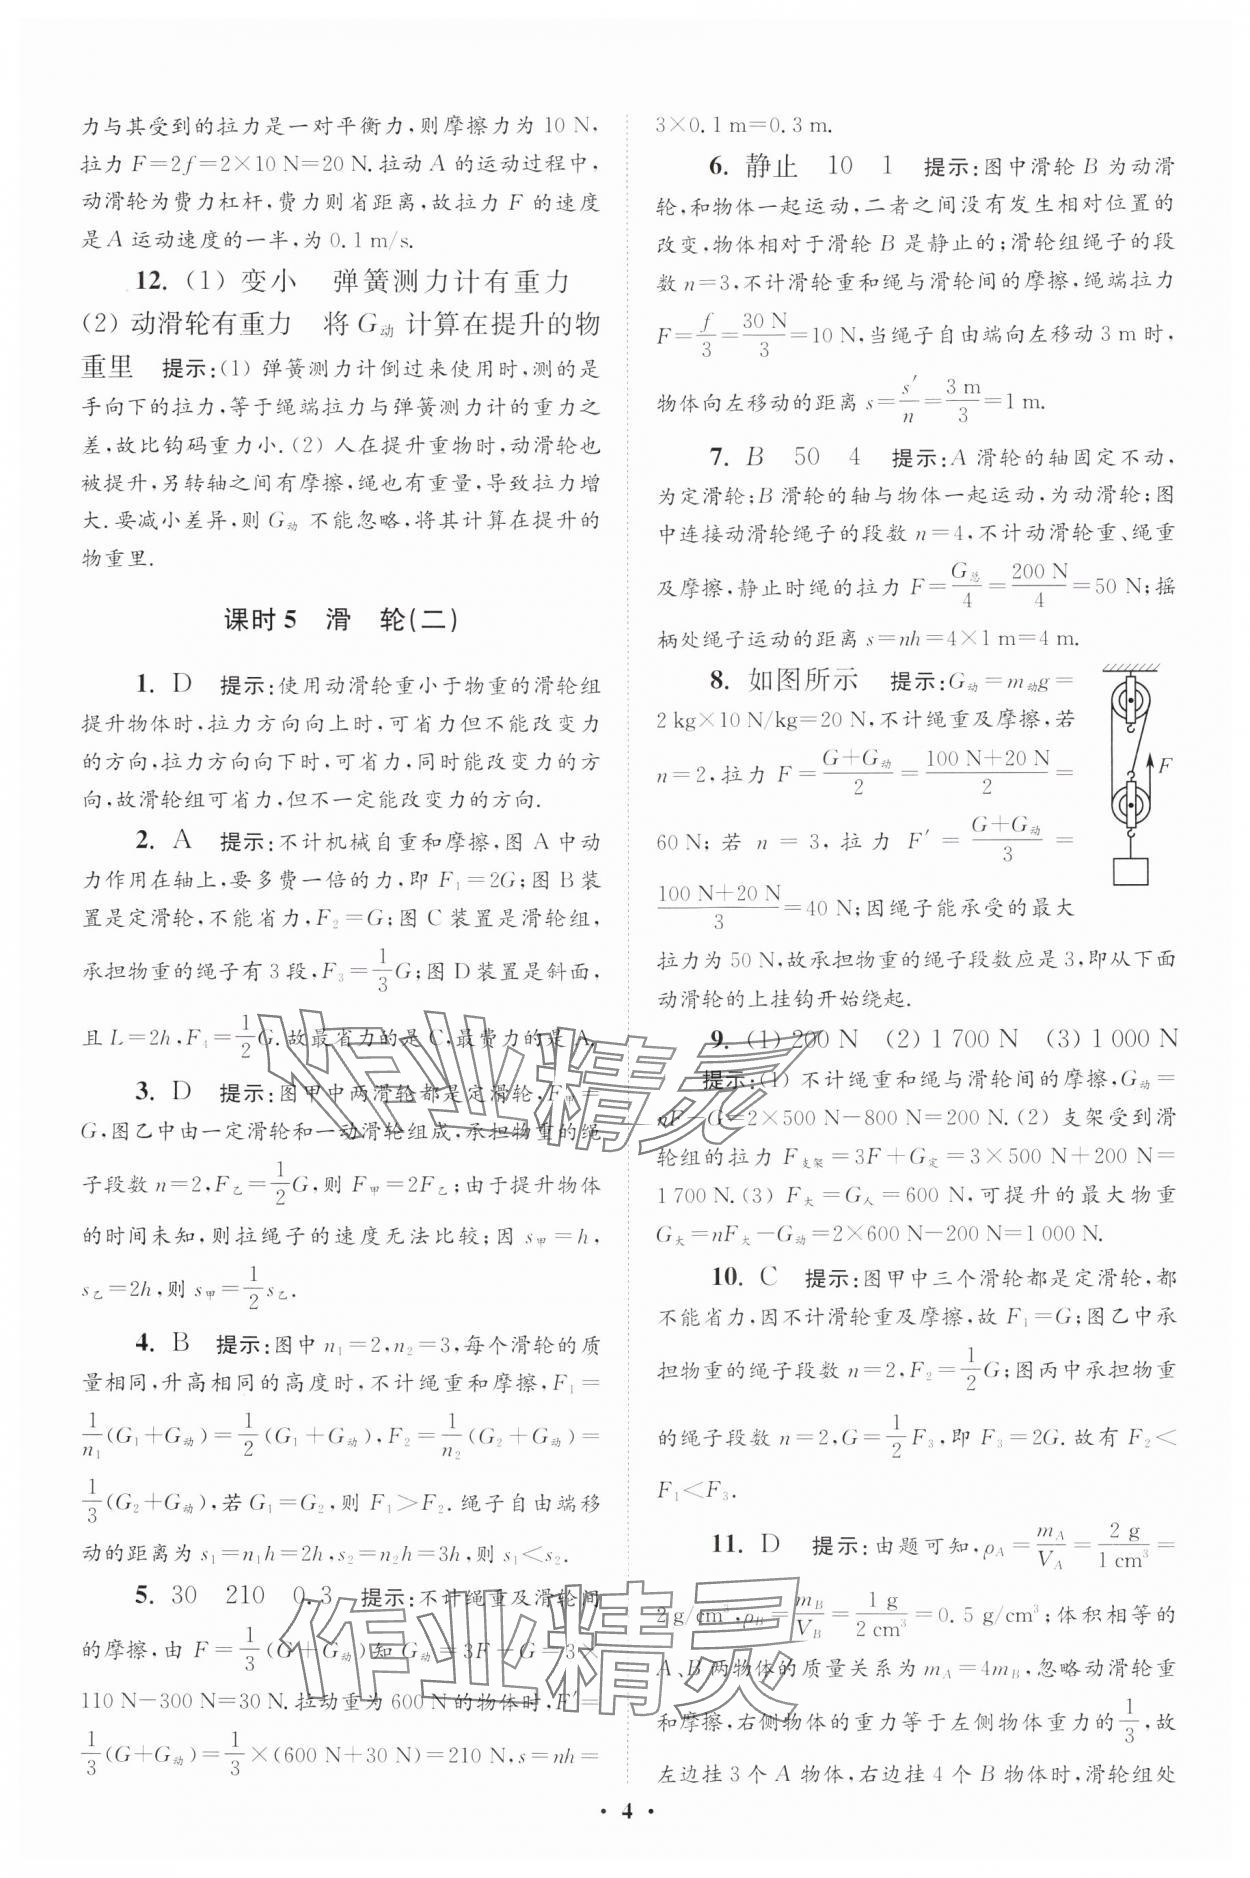 力与其受到的拉力是一对平衡力,则摩擦力为 10 N,
拉力 F=2f=2×10 N=20 N.拉动 A 的运动过程中,
动滑轮为费力杠杆,费力则省距离,故拉力 F 的速度
是 A 运动速度的一半,为 0.1 m/s.
12. (1) 变小 弹簧测力计有重力
(2) 动滑轮有重力 将 G动 计算在提升的物
重里 提示:(1) 弹簧测力计倒过来使用时,测的是
手向下的拉力,等于绳端拉力与弹簧测力计的重力之
差,故比钩码重力小.(2) 人在提升重物时,动滑轮也
被提升,另转轴之间有摩擦,绳也有重量,导致拉力增
大.要减小差异,则 G动 不能忽略,将其计算在提升的
物重里.
课时 5 滑 轮(二)
1. D 提示:使用动滑轮重小于物重的滑轮组
提升物体时,拉力方向向上时,可省力但不能改变力
的方向,拉力方向向下时,可省力,同时能改变力的方
向,故滑轮组可省力,但不一定能改变力的方向.
2. A 提示:不计机械自重和摩擦,图 A 中动
力作用在轴上,要多费一倍的力,即 F₁=2G;图 B 装
置是定滑轮,不能省力,F₂=G;图 C 装置是滑轮组,
承担物重的绳子有 3 段,F₃=1/3G;图 D 装置是斜面,
且 L=2h,F₄=1/2G.故最省力的是 C,最费力的是 A.
3. D 提示:图甲中两滑轮都是定滑轮,F甲=
G,图乙中由一定滑轮和一动滑轮组成,承担物重的绳
子段数 n=2,F乙=1/2G,则 F甲=2F乙;由于提升物体
的时间未知,则拉绳子的速度无法比较;因 s甲=h,
s乙=2h,则 s甲=1/2s乙.
4. B 提示:图中 n₁=2,n₂=3,每个滑轮的质
量相同,升高相同的高度时,不计绳重和摩擦,F₁=
1/n₁(G₁+G动)=1/2(G₁+G动),F₂=1/n₂(G₂+G动)=
1/3(G₂+G动),若 G₁=G₂,则 F₁>F₂.绳子自由端移
动的距离为 s₁=n₁h=2h,s₂=n₂h=3h,则 s₁<s₂.
5. 30 210 0.3 提示:不计绳重及滑轮间
的摩擦,由 F=1/3(G+G动)知 G动=3F-G=3×
110 N-300 N=30 N.拉动重为 600 N 的物体时,F′=
1/3(G+G动)=1/3×(600 N+30 N)=210 N,s=nh=
3×0.1 m=0.3 m.
6. 静止 10 1 提示:图中滑轮 B 为动滑
轮,和物体一起运动,二者之间没有发生相对位置的
改变,物体相对于滑轮 B 是静止的;滑轮组绳子的段
数 n=3,不计滑轮重和绳与滑轮间的摩擦,绳端拉力
F=f/3=30 N/3=10 N,当绳子自由端向左移动 3 m 时,
物体向左移动的距离 s=s′/n=3 m/3=1 m.
7. B 50 4 提示:A 滑轮的轴固定不动,
为定滑轮;B 滑轮的轴与物体一起运动,为动滑轮;图
中连接动滑轮绳子的段数 n=4,不计动滑轮重、绳重
及摩擦,静止时绳的拉力 F=G总/4=200 N/4=50 N;摇
柄处绳子运动的距离 s=nh=4×1 m=4 m.
8. 如图所示 提示:G动=m动g=
2 kg×10 N/kg=20 N,不计绳重及摩擦,若
n=2,拉力 F=(G+G动)/2=(100 N+20 N)/2=
60 N;若 n=3,拉力 F′=(G+G动)/3=
(100 N+20 N)/3=40 N;因绳子能承受的最大
拉力为 50 N,故承担物重的绳子段数应是 3,即从下面
动滑轮的上挂钩开始绕起.
F
9. (1) 200 N (2) 1 700 N (3) 1 000 N
提示:(1) 不计绳重和绳与滑轮间的摩擦,G动=
nF-G=2×500 N-800 N=200 N.(2) 支架受到滑
轮组的拉力 F支架=3F+G定=3×500 N+200 N=
1 700 N.(3) F大=G人=600 N,可提升的最大物重
G大=nF大-G动=2×600 N-200 N=1 000 N.
10. C 提示:图甲中三个滑轮都是定滑轮,都
不能省力,因不计滑轮重及摩擦,故 F₁=G;图乙中承
担物重的绳子段数 n=2,F₂=1/2G;图丙中承担物重
的绳子段数 n=2,G=1/2F₃,即 F₃=2G.故有 F₂<
F₁<F₃.
11. D 提示:由题可知,ρA=mA/VA=2 g/1 cm³=
2 g/cm³,ρB=mB/VB=1 g/2 cm³=0.5 g/cm³;体积相等的
A、B 两物体的质量关系为 mA=4mB,忽略动滑轮重
和摩擦,右侧物体的重力等于左侧物体重力的1/3,故
左边挂 3 个 A 物体,右边挂 4 个 B 物体时,滑轮组处
· 4 ·
作业精灵
作业精灵